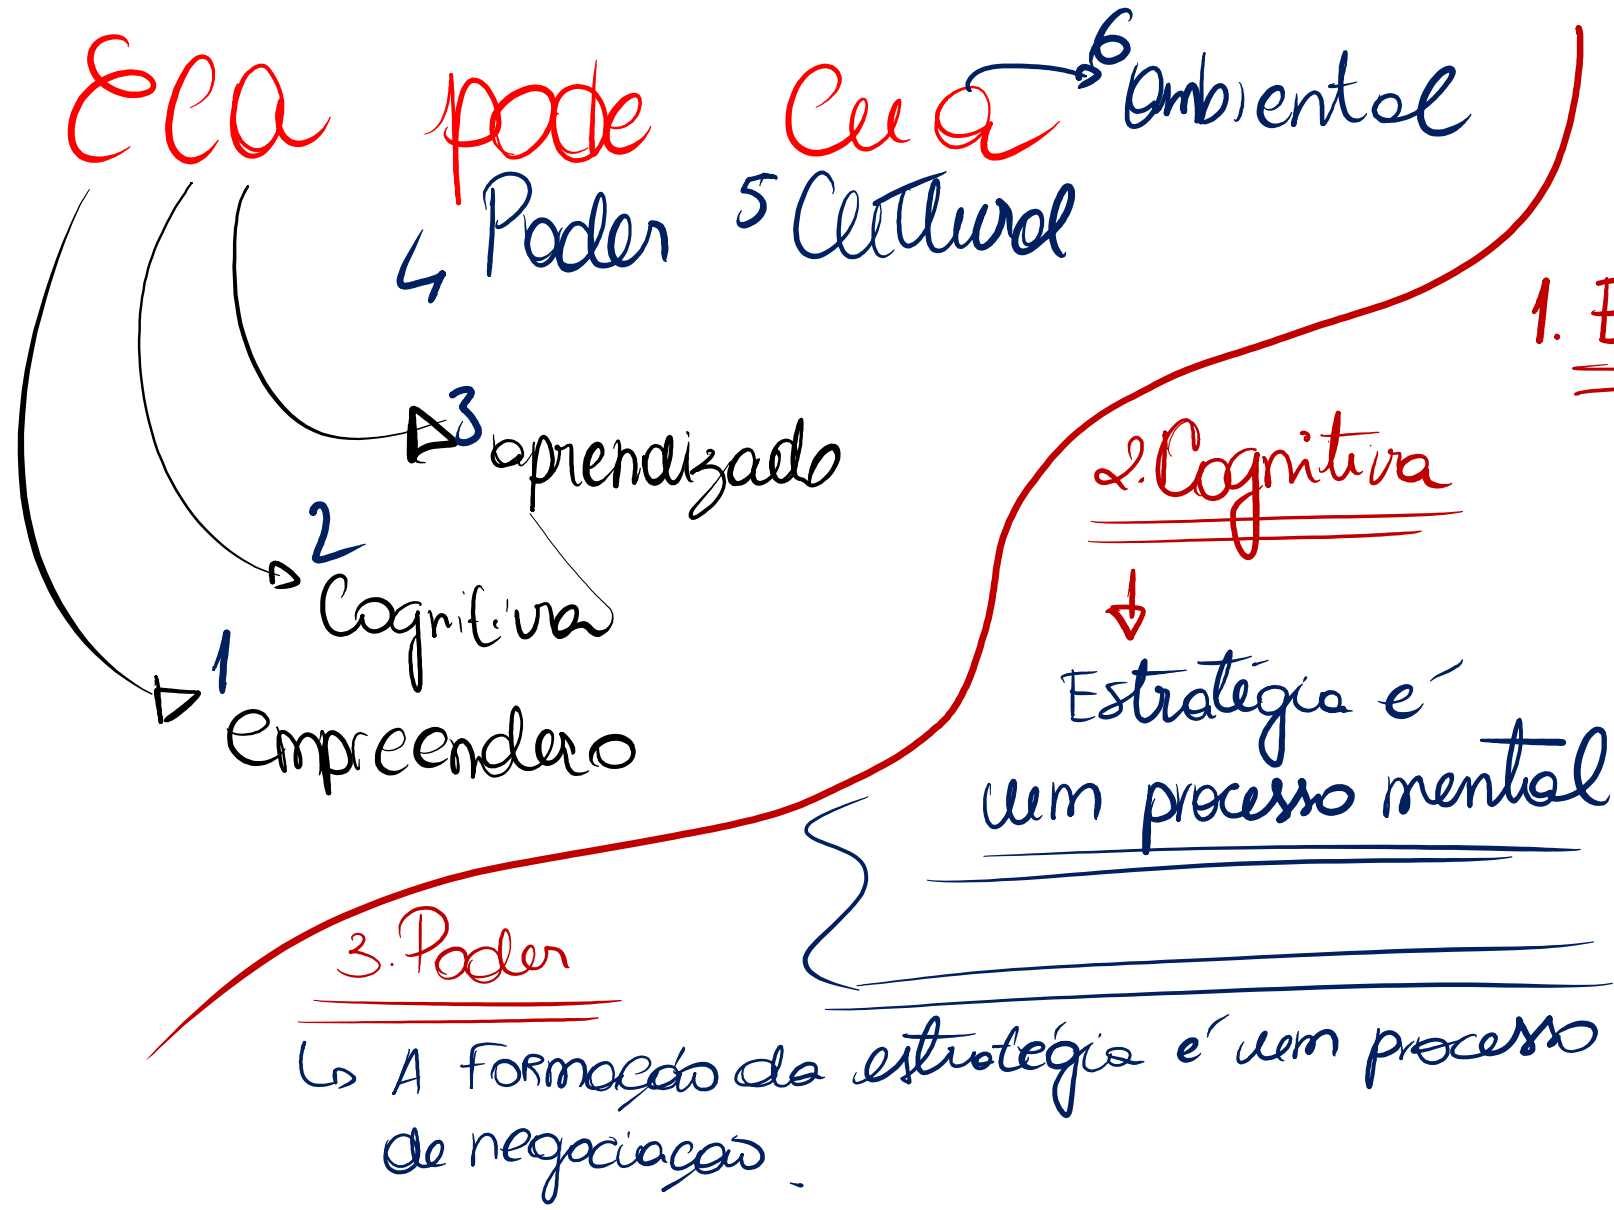 ECA pode Cua
6 ambiental
4 Poder 5 Cultural
3 aprendizado
2 Cognitiva
1 empreendero
1. E
2. Cognitiva
Estratégia é
um processo mental
3. Poder
A Formação da estratégia é um processo
de negociação.